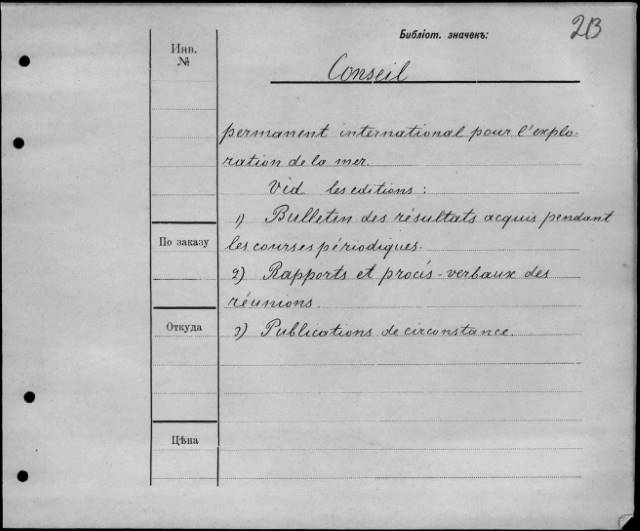 Библіот. значекъ: 2B
Инв. №
Conseil
permanent international pour l'explo-
ration de la mer.
Vid les editions:
1) Bulletin des résultats acquis pendant
По заказу
les courses périodiques.
2) Rapports et procès-verbaux des
réunions.
Откуда
3) Publications de circonstance.
Цѣна